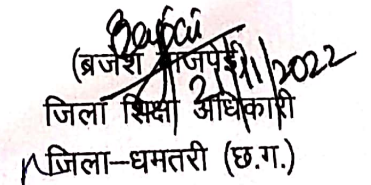 (ब्रजेश बाजपेई)
21/11/2022
जिला शिक्षा अधिकारी
जिला–धमतरी (छ.ग.)